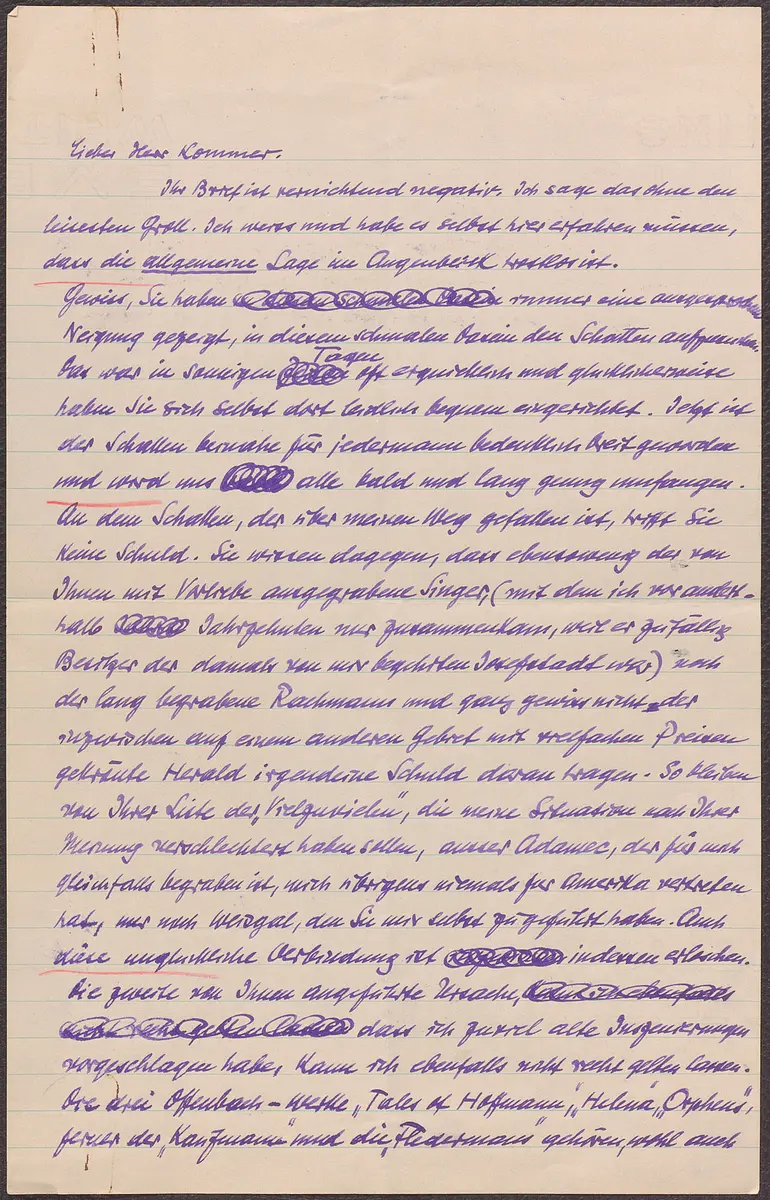 Lieber Herr Kommer.
Ihr Brief ist vernichtend negativ. Ich sage das ohne den
leisesten Groll. Ich weiss und habe es selbst hier erfahren müssen,
dass die allgemeine Lage im Augenblick trostlos ist.
Gewiss, Sie haben immer eine ausgesprochene
Neigung gezeigt, in diesem schmalen Dasein den Schatten aufzusuchen.
Das war in sonnigen Tagen oft erquicklich und glücklicherweise
haben Sie sich selbst dort leidlich bequem eingerichtet. Jetzt ist
der Schatten beinahe für jedermann bedenklich breit geworden
und wird uns alle bald und lang genug umfangen.
An dem Schatten, der über meinen Weg gefallen ist, trifft Sie
keine Schuld. Sie wissen dagegen, dass ebensowenig der von
Ihnen mit Vorliebe ausgegrabene Singer, (mit dem ich vor andert-
halb Jahrzehnten nur zusammenkam, weil er zufällig
Besitzer der damals von mir begehrten Josefstadt war) noch
der lang begrabene Rachmann und ganz gewiss nicht der
inzwischen auf einem anderen Gebiet mit vielfachen Preisen
gekrönte Herald irgendeine Schuld daran tragen. So bleiben
von Ihrer Liste der „Vielzuvielen", die meine Situation nach Ihrer
Meinung verschlechtert haben sollen, ausser Adamec, der für mich
gleichfalls begraben ist, mich übrigens niemals für Amerika vertreten
hat, nur noch Weisgal, den Sie mir selbst zugeführt haben. Auch
diese unglückliche Verbindung ist indessen erloschen.
Die zweite von Ihnen angeführte Ursache,
dass ich zuviel alte Inszenierungen
vorgeschlagen habe, kann ich ebenfalls nicht recht gelten lassen.
Die drei Offenbach-Werke „Tales of Hoffmann", „Helena", „Orpheus",
ferner der „Kaufmann" und die „Fledermaus" gehören, wohl auch